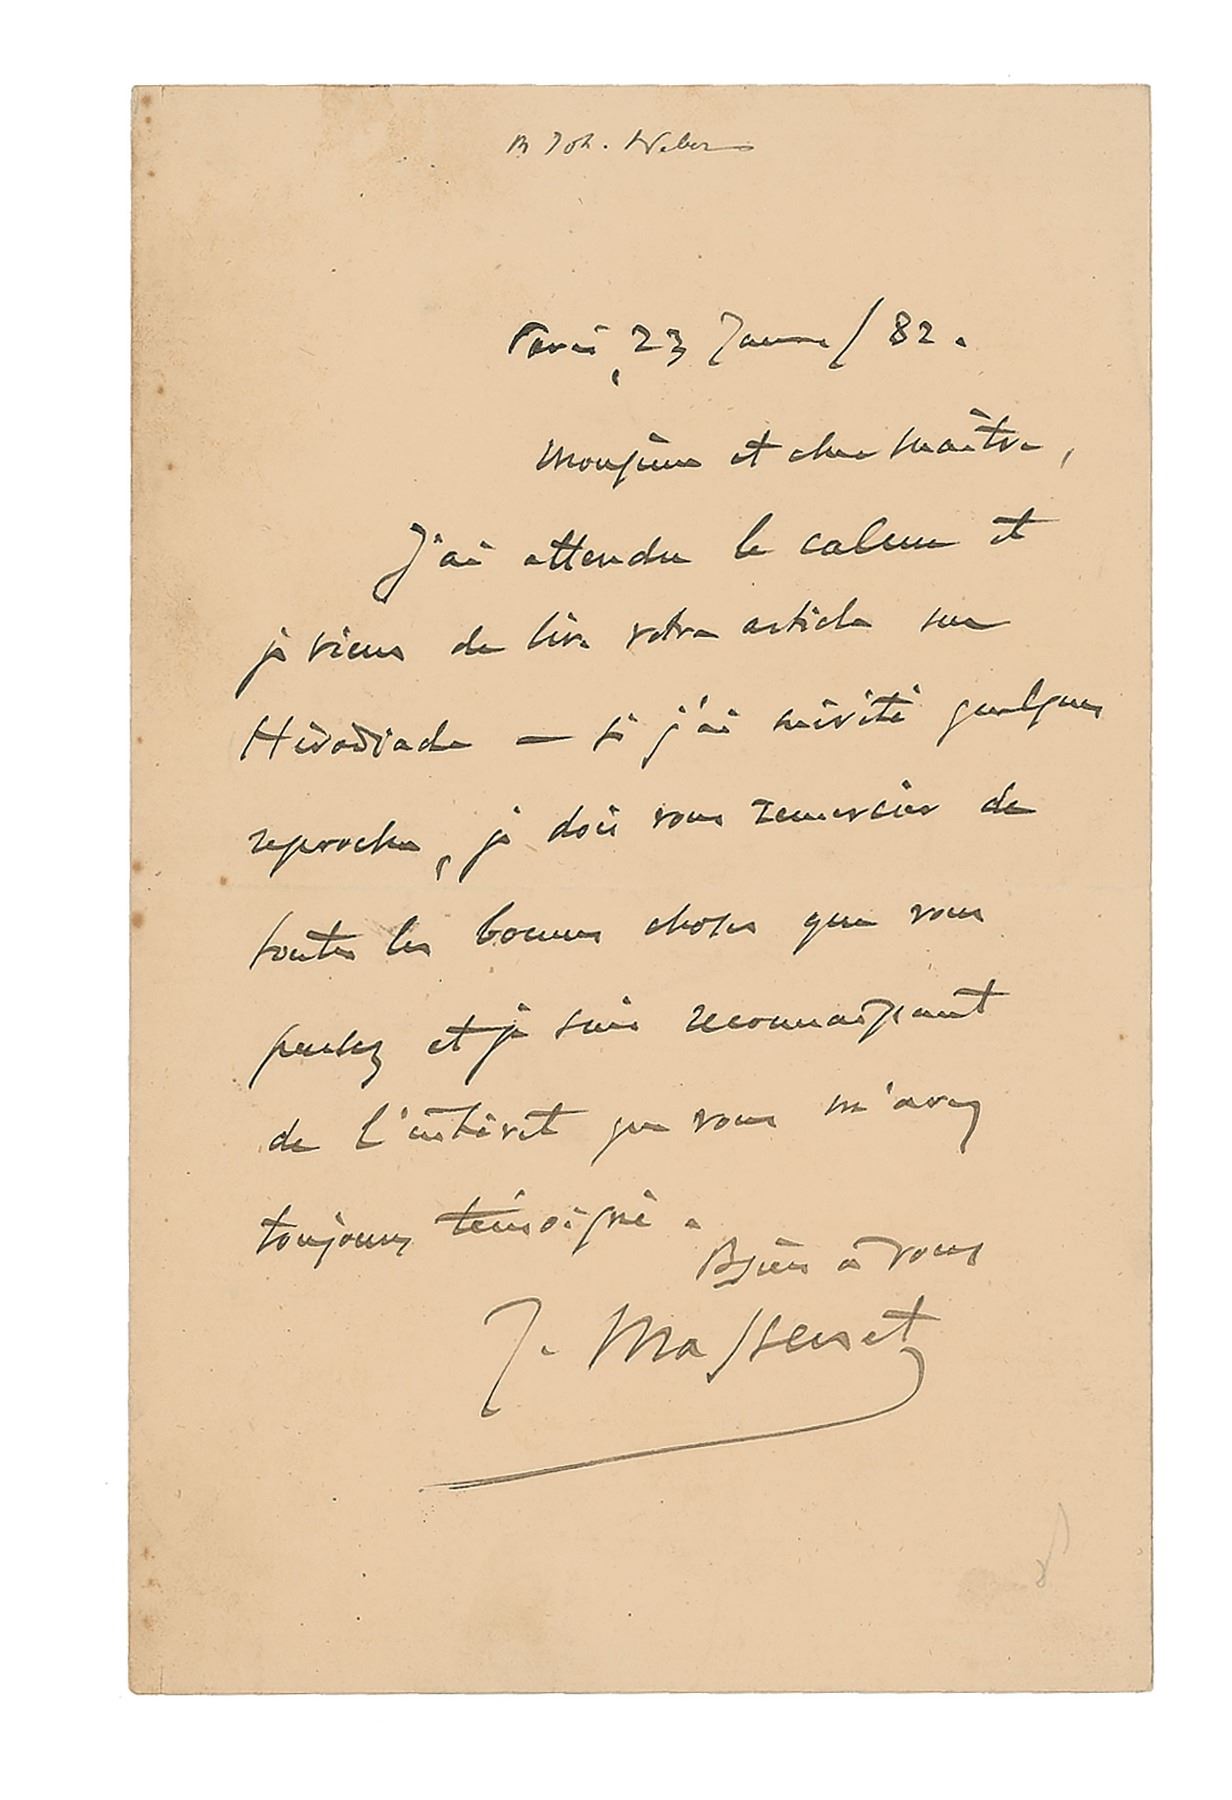 M Joh. Weber
Paris, 23 Janvier / 82.
Monsieur et cher Maître,
J'ai attendu le calme et
je viens de lire votre article sur
Hérodiade — si j'ai mérité quelques
reproches, je dois vous remercier de
toutes les bonnes choses que vous
pensez et je suis reconnaissant
de l'intérêt que vous m'avez
toujours témoigné.
Bien à vous
J. Massenet